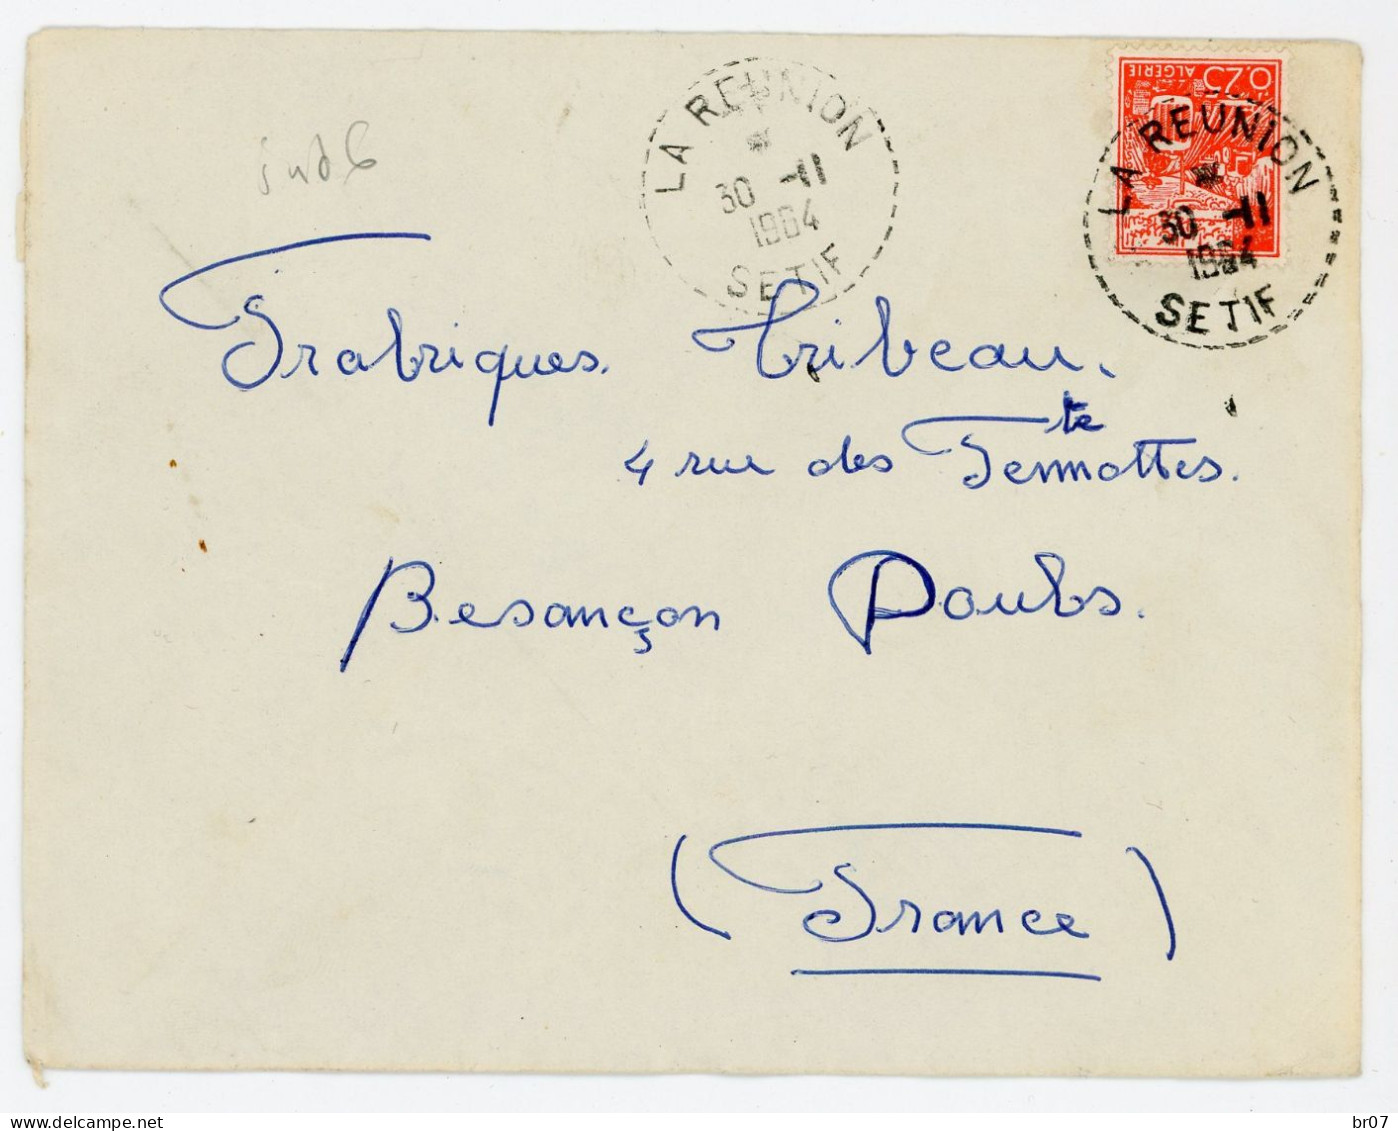 LA REUNION
30 -11
1964
SETIF
0,25
ALGERIE
LA REUNION
30 -11
1964
SETIF
Frabriques. Tribeau.
te
4 rue des Temmottes.
Besançon Doubs.
(France)
delcampe.net
br07